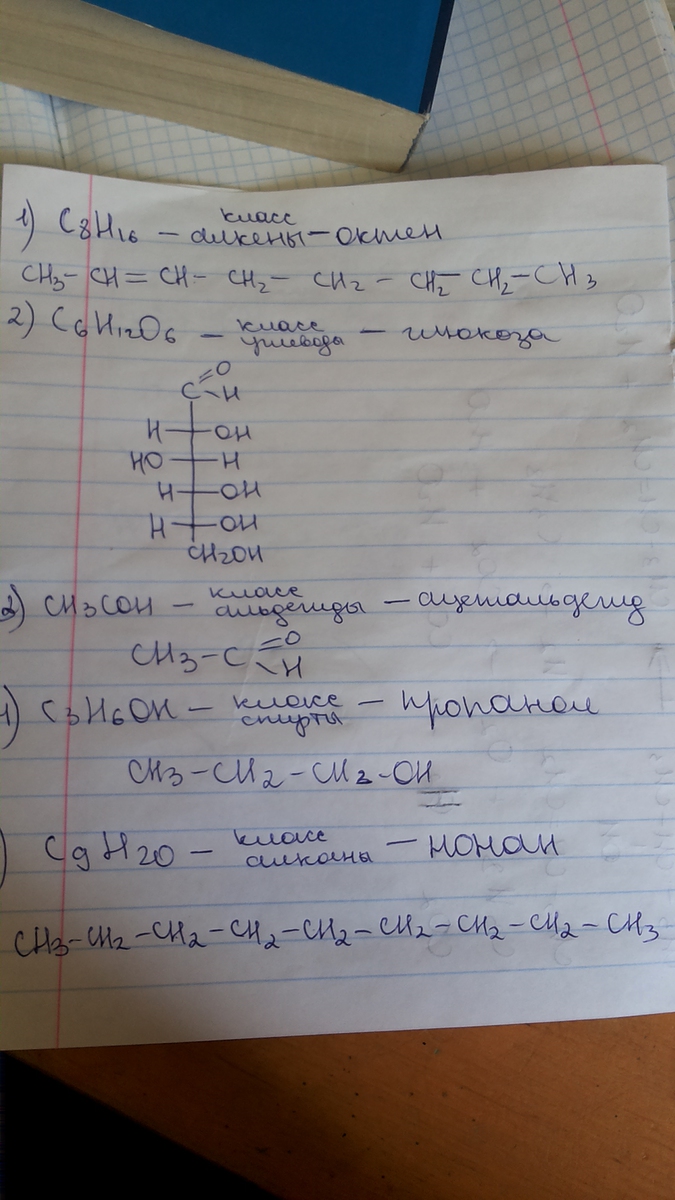 1) C8H16 – класс алкены – октен
CH3– CH = CH – CH2 – CH2 – CH2– CH2–CH3
2) C6H12O6 – класс углеводы – глюкоза
C=O
–H
H––OH
HO––H
H––OH
H––OH
CH2OH
) CH3COH – класс альдегиды – ацетальдегид
CH3–C=O
–H
) C3H6OH – класс спирты – пропанол
CH3–CH2–CH2–OH
) C9H20 – класс алканы – нонан
CH3–CH2–CH2–CH2–CH2–CH2–CH2–CH2–CH3